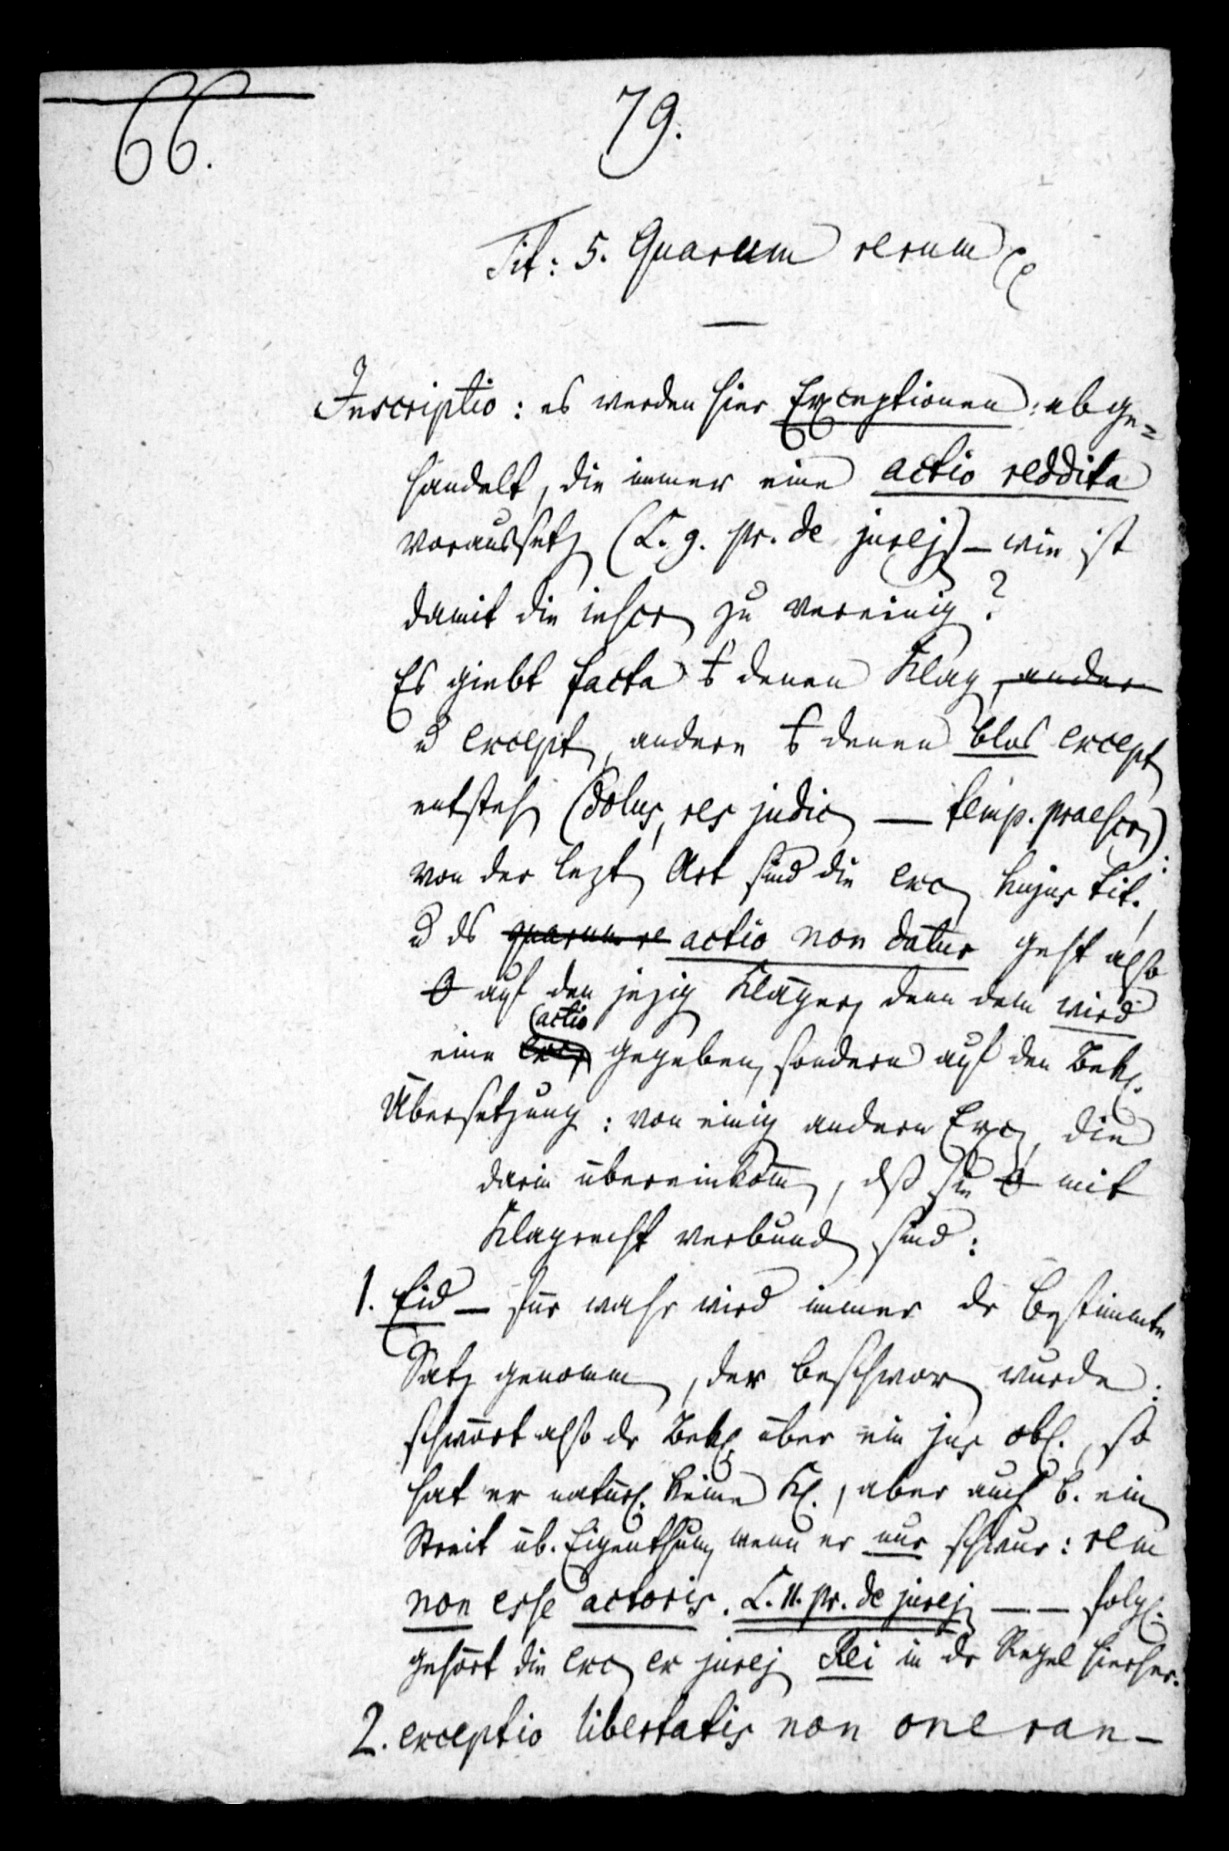 66.
79.
Tit: 5. Quarum rerum
Inscriptio: es werden hier Exceptionen abge=
handelt, die immer eine actio reddita
voraussetz (L. 9. pr. de jurej) — wie ist
damit die inscr zu vereinig?
Es giebt facta denen Klag, ander
u except, andere denen blos except
entsteh (dolus, res judic — temp. praescr)
von der lezt Art sind die exc hujus tit.,
u ds quarum re actio non datur geht also
auf den jezig Kläger, denn dem wird
actio
eine exc gegeben, sondern auf den Bekl.
Übersetzung: von einig andern Exc, die
darin übereinkom̄, dß sie mit
Klagrecht verbund sind:
1. Eid — für wahr wird immer dr bestimmte
Satz genomm, der beschwor wurde:
schwört also dr Bekl über ein jus obl., so
hat er natürl. keine Kl., aber auch b. ein
Streit üb. Eigenthum, wenn er nur schwur: rem
non esse actoris. L. 11. pr. de jurej — — folgl.
gehört die exc ex jurej Rei in dr Regel hierher.
2. exceptio libertatis non oneran-